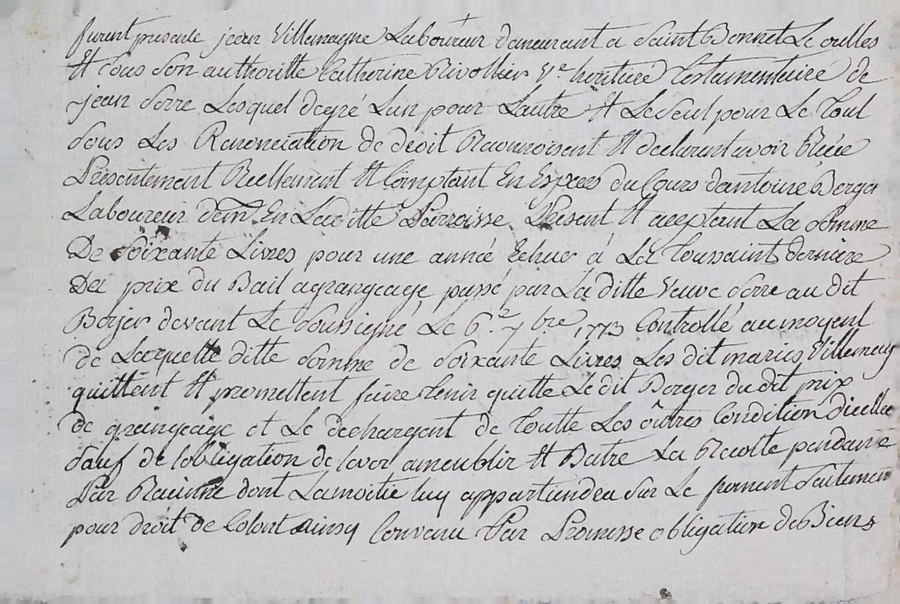 furent presents jean Villemagne Laboureur demeurant a Saint Bonnet Le oulles
Et sous son authoritte Catherine Rivollier Ve heritiere Testamentaire de
jean Serre Lesquel degré Lun pour Lautre Et Le Seul pour Le Tout
sous Les Renonciation de droit Reconnoissent Et declarent avoir
Presentement Reellement Et Comptant En Espece du Cours dantoine Berger
Laboureur dem En Laditte Parroisse Present Et aceptant La somme
De soixante Livres pour une année Echue à La Toussaint derniere
Du prix du Bail agrangeage passé par Laditte Veuve Serre au dit
Berjer devant Le Soussigné Le 6. 7bre 1773 Controllé au moyent
de Laquelle ditte Somme de Soixante Livres Les dit mariés Villemagne
quittent Et promettent faire tenir quitte Le dit Berger du dit prix
de grangeage et Le dechargent de Toutte Les outres Condition dicelluy
Sauf de Lobligation de Lever ameublir Et Batre La Recolte pendante
Par Racinne dont La moitie luy appartiendra Sur Le froment Seulement
pour droit de Colont ainsy Convenu Par Promesse obligation de Biens